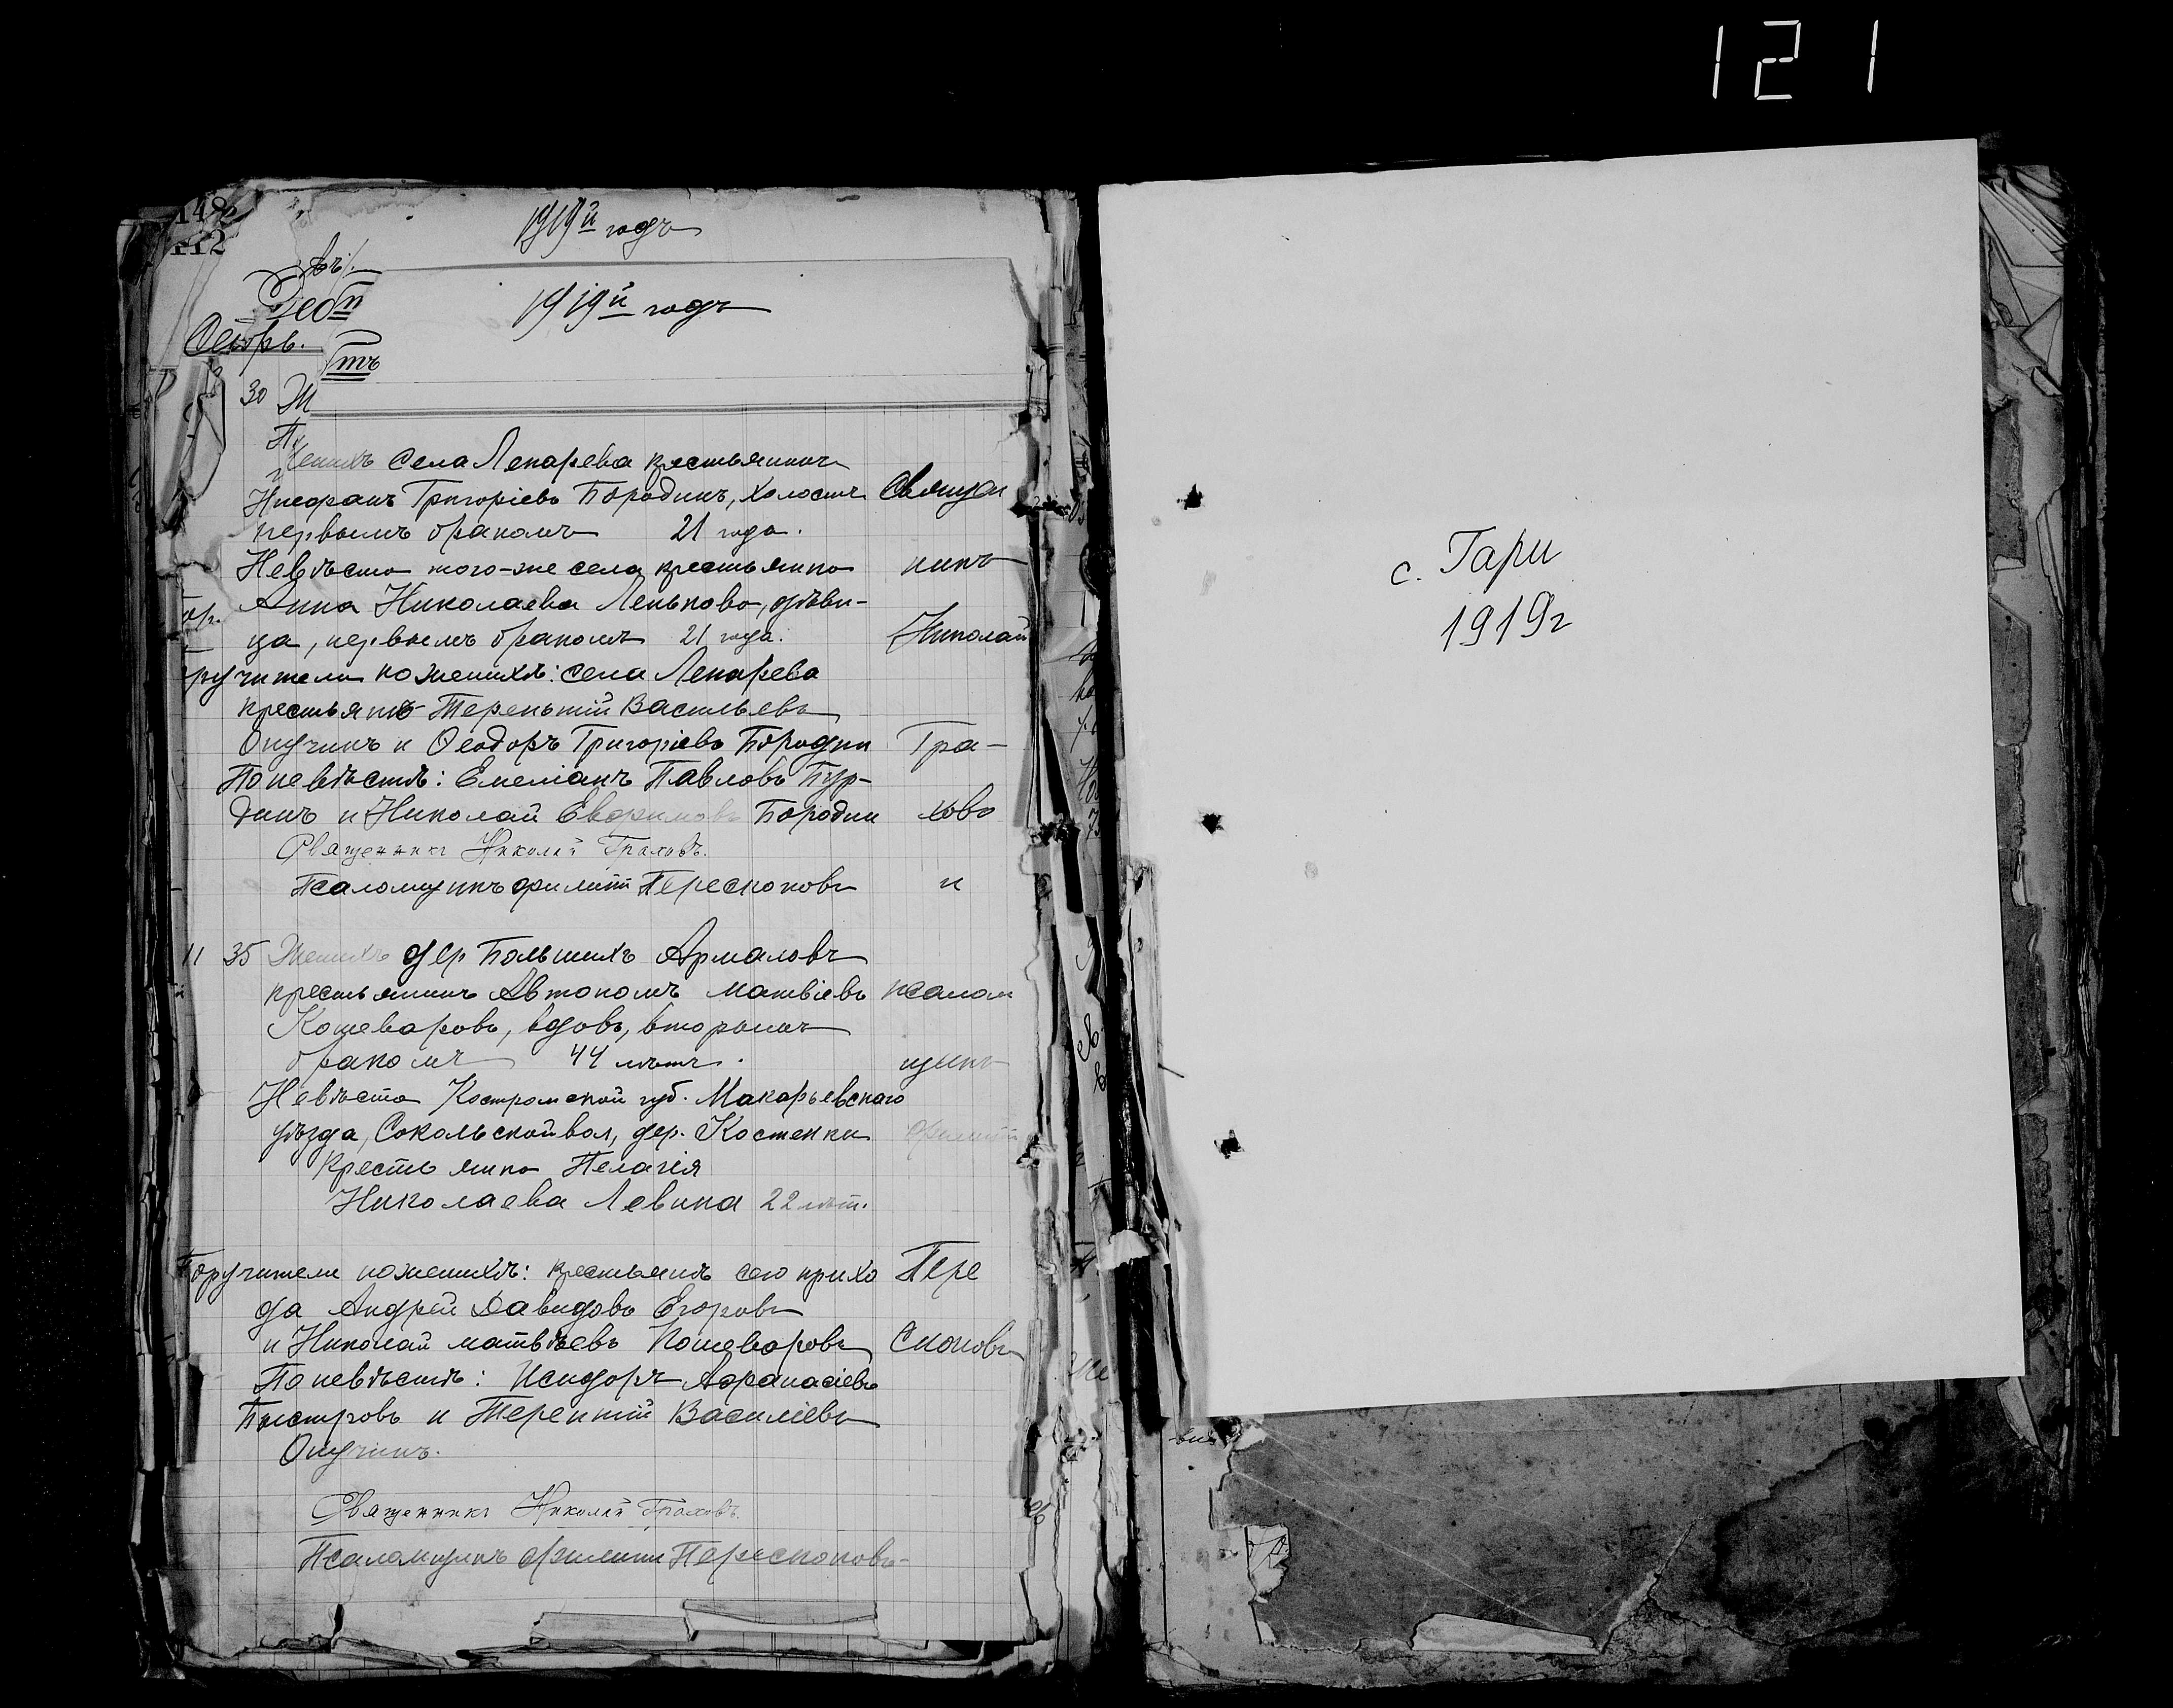 121
148
112
1919й годъ
въ
1919й годъ
30 Ж
Женихъ села Лекарева крестьянинъ
Никфанъ Григоріевъ Бородинъ, холостъ Священ
первымъ бракомъ 21 года.
Невѣста того-же села крестьянка никъ
Анна Николаева Ленькова, дѣви-
ца, первымъ бракомъ 21 года. Николай
ручители по женихѣ: села Лекарева
крестьяне Терентій Васильевъ
Опучинъ и Ѳеодоръ Григоріевъ Бородин Гра-
По невѣстѣ: Емеліанъ Павловъ Бур-
динъ и Николай Евфимовъ Бородин ховъ
Священникъ Николай Граховъ.
Псаломщикъ Филиппъ Перескоковъ и
11 35 Женихъ дер Большихъ Армаловъ
крестьянинъ Автономъ Матвіевъ псалом
Кошеваровъ, вдовъ, вторымъ
бракомъ 44 лѣтъ. щикъ
Невѣста Костромской губ. Макарьевскаго
уѣзда, Сокольской вол, дер. Костенки Филиппъ
крестьянка Пелагія
Николаева Левина 22 лѣт.
Поручители по женихѣ: крестьянинъ сего прихо Пере
да Андрей Давидовъ Егоровъ
и Николай Матвѣевъ Кошеваровъ скоковъ
По невѣстѣ: Исидоръ Афанасіевъ
Быстровъ и Терентій Василіевъ
Опучинъ.
Священникъ Николай Граховъ.
Псаломщикъ Филиппъ Перескоковъ
с. Гари
1919г